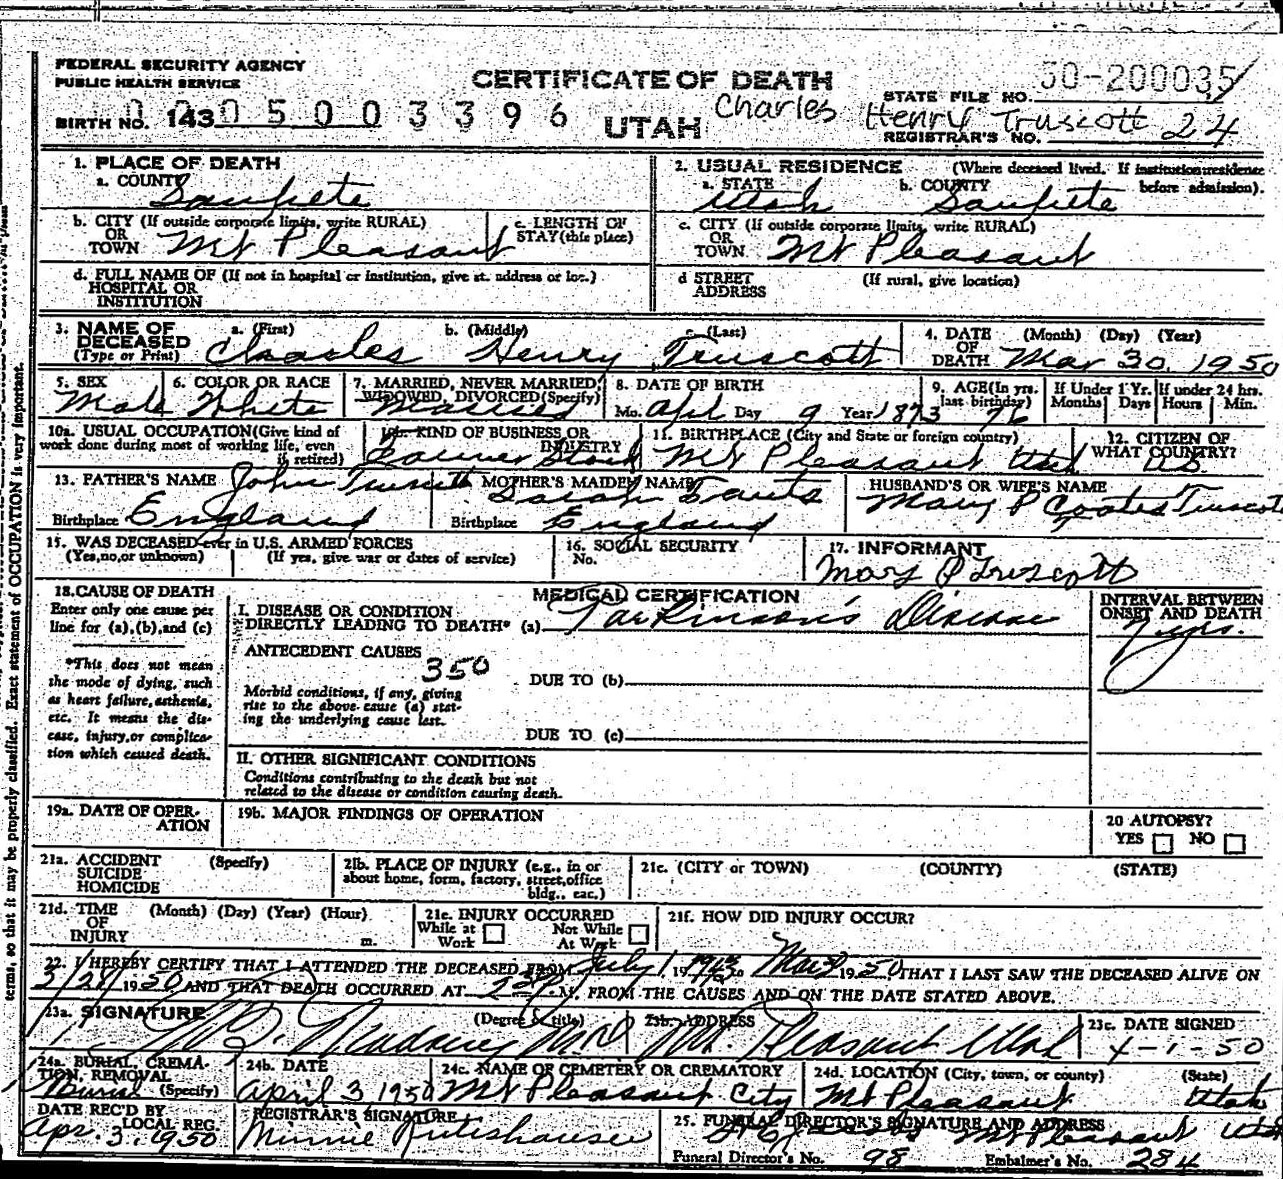 FEDERAL SECURITY AGENCY
PUBLIC HEALTH SERVICE
CERTIFICATE OF DEATH
STATE FILE NO. 50-200035
BIRTH NO. 143 0 5 0 0 3 3 9 6
UTAH
Charles Henry Truscott
REGISTRAR'S NO. 24
1. PLACE OF DEATH
a. COUNTY Sanpete
2. USUAL RESIDENCE (Where deceased lived. If institution: residence before admission).
a. STATE Utah b. COUNTY Sanpete
b. CITY (If outside corporate limits, write RURAL) OR TOWN Mt Pleasant
c. LENGTH OF STAY (this place)
c. CITY (If outside corporate limits, write RURAL) OR TOWN Mt Pleasant
d. FULL NAME OF (If not in hospital or institution, give st. address or loc.) HOSPITAL OR INSTITUTION
d STREET ADDRESS (If rural, give location)
3. NAME OF DECEASED (Type or Print) a. (First) b. (Middle) c. (Last)
Charles Henry Truscott
4. DATE OF DEATH (Month) (Day) (Year)
Mar 30, 1950
5. SEX Male
6. COLOR OR RACE White
7. MARRIED, NEVER MARRIED, WIDOWED, DIVORCED (Specify) Married
8. DATE OF BIRTH Mo. April Day 9 Year 1873
9. AGE (In yrs. last birthday) 76
If Under 1 Yr. Months Days
If under 24 hrs. Hours Min.
10a. USUAL OCCUPATION (Give kind of work done during most of working life, even if retired)
10b. KIND OF BUSINESS OR INDUSTRY
11. BIRTHPLACE (City and State or foreign country) Mt Pleasant Utah
12. CITIZEN OF WHAT COUNTRY? US
13. FATHER'S NAME John Truscott
Birthplace England
MOTHER'S MAIDEN NAME Sarah
Birthplace England
HUSBAND'S OR WIFE'S NAME
Mary P Coates Truscott
15. WAS DECEASED ever in U.S. ARMED FORCES
(Yes, no, or unknown) (If yes, give war or dates of service)
16. SOCIAL SECURITY No.
17. INFORMANT
Mary P Truscott
18. CAUSE OF DEATH
Enter only one cause per line for (a), (b), and (c)
MEDICAL CERTIFICATION
I. DISEASE OR CONDITION DIRECTLY LEADING TO DEATH* (a) Parkinson's Disease
INTERVAL BETWEEN ONSET AND DEATH
7 yrs.
*This does not mean the mode of dying, such as heart failure, asthenia, etc. It means the disease, injury, or complication which caused death.
ANTECEDENT CAUSES
350
Morbid conditions, if any, giving rise to the above cause (a) stating the underlying cause last.
DUE TO (b)
DUE TO (c)
II. OTHER SIGNIFICANT CONDITIONS
Conditions contributing to the death but not related to the disease or condition causing death.
19a. DATE OF OPERATION
19b. MAJOR FINDINGS OF OPERATION
20 AUTOPSY?
YES NO
21a. ACCIDENT SUICIDE HOMICIDE (Specify)
21b. PLACE OF INJURY (e.g., in or about home, form, factory, street, office bldg., eac.)
21c. (CITY or TOWN) (COUNTY) (STATE)
21d. TIME OF INJURY (Month) (Day) (Year) (Hour) m.
21e. INJURY OCCURRED
While at Work Not While At Work
21f. HOW DID INJURY OCCUR?
22. I HEREBY CERTIFY THAT I ATTENDED THE DECEASED FROM July 1 19 to Mar 30 1950 THAT I LAST SAW THE DECEASED ALIVE ON
3/28/1950 AND THAT DEATH OCCURRED AT M. FROM THE CAUSES AND ON THE DATE STATED ABOVE.
23a. SIGNATURE (Degree or title) M.D.
23b. ADDRESS Mt. Pleasant Utah
23c. DATE SIGNED 4-1-50
24a. BURIAL, CREMATION, REMOVAL (Specify) Burial
24b. DATE April 3, 1950
24c. NAME OF CEMETERY OR CREMATORY Mt Pleasant City
24d. LOCATION (City, town, or county) (State) Mt Pleasant Utah
DATE REC'D BY LOCAL REG. Apr. 3, 1950
REGISTRAR'S SIGNATURE
Minnie
25. FUNERAL DIRECTOR'S SIGNATURE AND ADDRESS Mt Pleasant Utah
Funeral Director's No. 98 Embalmer's No. 284
terms, so that it may be properly classified. Exact statement of OCCUPATION is very important.